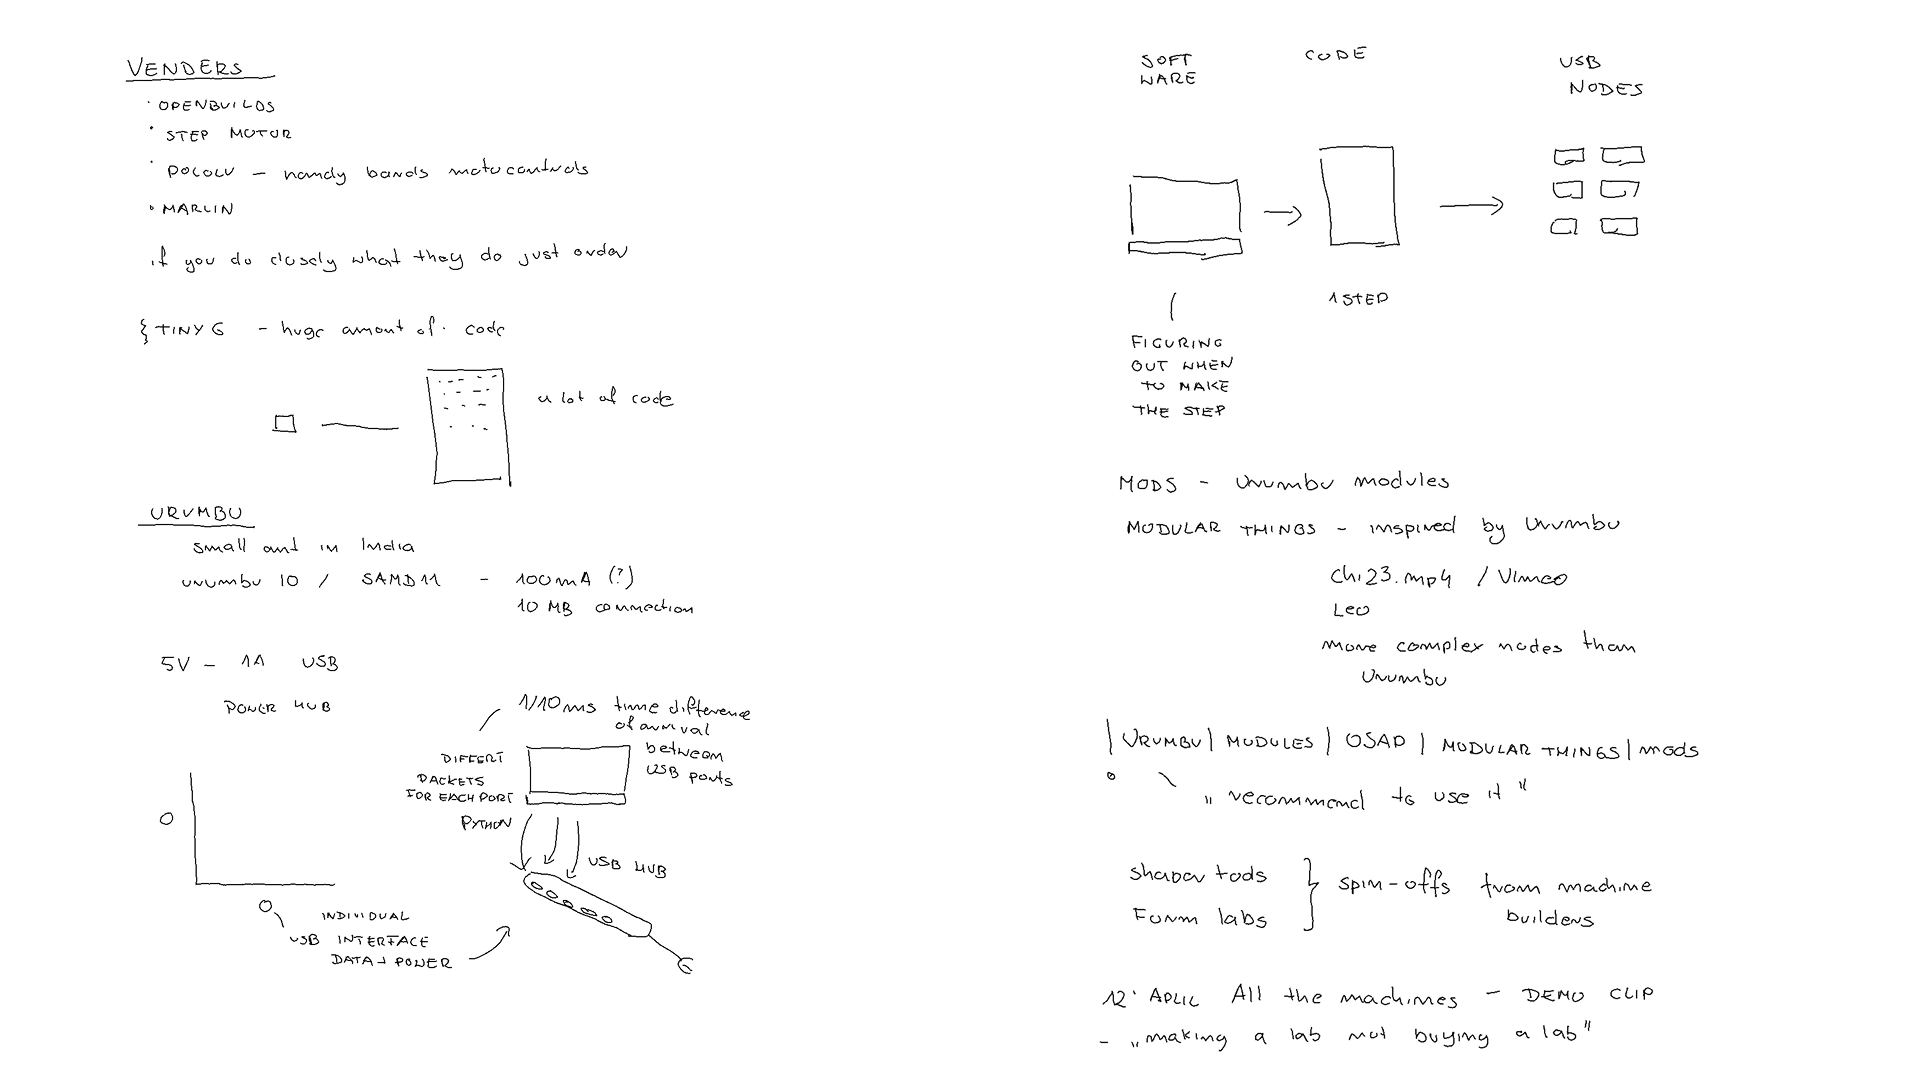 VENDERS
· OPENBUILDS
· STEP MOTOR
· POLOLU – handy bands motocontrols
· MARLIN
if you do closely what they do just order
{ TINY G – huge amont of code
a lot of code
URUMBU
small ant in India
urumbu 10 / SAMD11 – 100mA (?)
10 MB connection
5V – 1A USB
POWER HUB
1/10ms time difference
of arrival
between
USB ports
DIFFERT
PACKETS
FOR EACH PORT
PYTHON
USB HUB
INDIVIDUAL
USB INTERFACE
DATA + POWER
SOFT
WARE
CODE
USB
NODES
1 STEP
FIGURING
OUT WHEN
TO MAKE
THE STEP
MODS – Urumbu modules
MODULAR THINGS – inspired by Urumbu
chi23.mp4 / Vimeo
Leo
more complex nodes than
Urumbu
| URUMBU | MODULES | OSAP | MODULAR THINGS | mods
„ recommend to use it "
Shaper tools
Form labs
} spin-offs from machine
builders
12' APLIL All the machines – DEMO CLIP
– „making a lab not buying a lab"